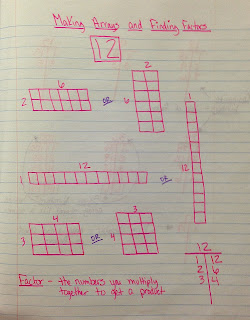 Making Arrays and Finding Factors
12
6
2
OR
2
6
1
12
12
1
OR
4
3
OR
3
4
12
1 12
2 6
3 4
Factor - the numbers you multiply
together to get a product